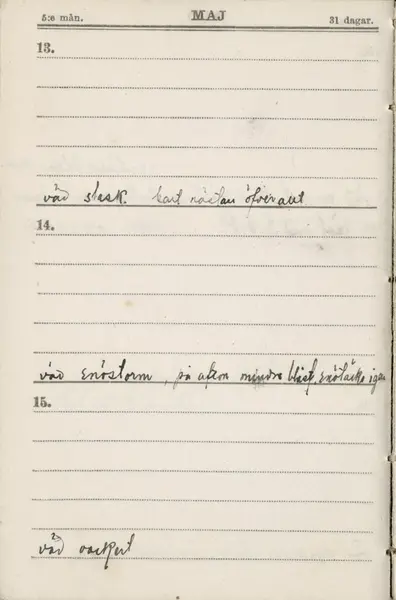 5:e mån. MAJ 31 dagar.
13.
väd slask. bart nästan öfverallt
14.
väd snöstorm, på afton mindre blåst, snötäcke igen
15.
väd vackert